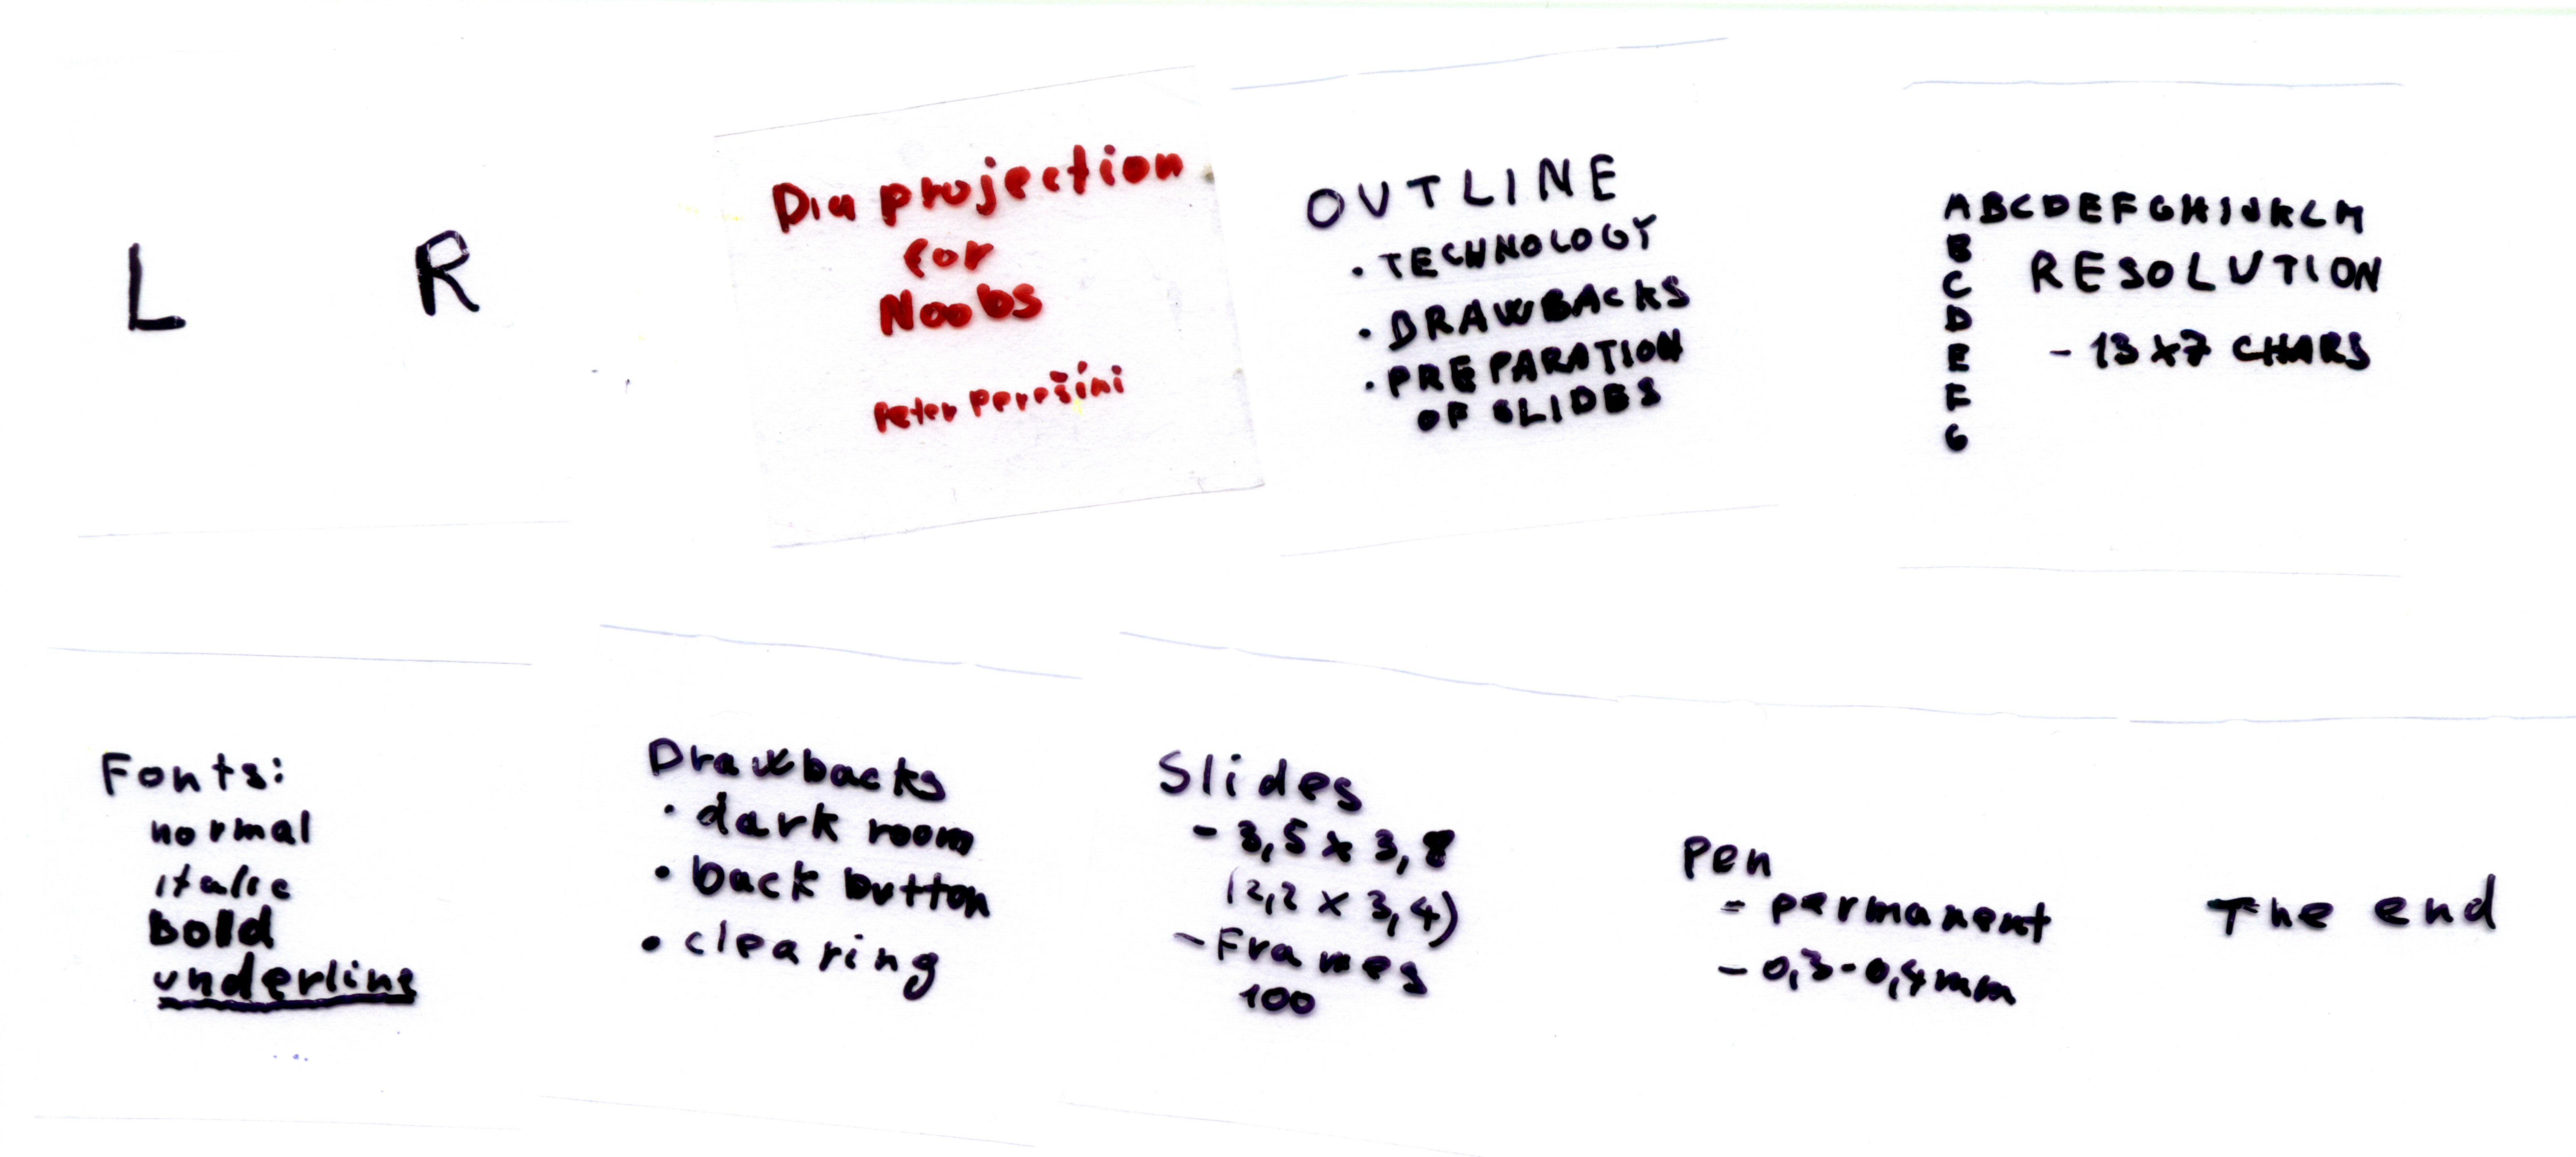 L R
Dia projection
for
Noobs
Peter Perešíni
OUTLINE
• TECHNOLOGY
• DRAWBACKS
• PREPARATION
OF SLIDES
ABCDEFGHIJKLM
B
C
D
E
F
G
RESOLUTION
- 13x7 CHARS
Fonts:
normal
italic
bold
underline
Drawbacks
• dark room
• back button
• clearing
Slides
- 3,5 x 3,8
(2,2 x 3,4)
- Frames
100
Pen
- permanent
- 0,3-0,4mm
The end